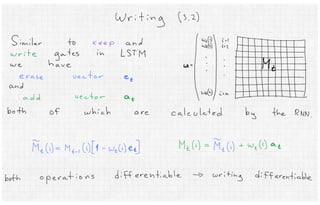 Writing (3.2)
Similar to keep and
write gates in LSTM
we have
erase vector e_t
and
add vector a_t
w = ( w_t(1) w_t(2) . . . w_t(n) ) i=1 i=2 . . . i=n M_t
both of which are calculated by the RNN.
M̃_t(i) = M_{t-1}(i)[1 - w_t(i) e_t] M_t(i) = M̃_t(i) + w_t(i) a_t
both operations differentiable → writing differentiable